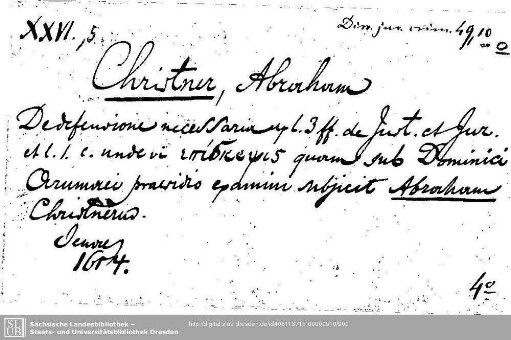 XXVI, 5.
Diss. jur. crim. 49, 10
Christner, Abraham
De defensione necessaria
l. 3 ff. de Just. et Jur.
et l. 1. c. unde vi quam sub Dominici
Arumaei praesidio examini subjicit Abraham
Christnerus.
Jenae
1614.
4º
SLUB
Sächsische Landesbibliothek –
Staats- und Universitätsbibliothek Dresden